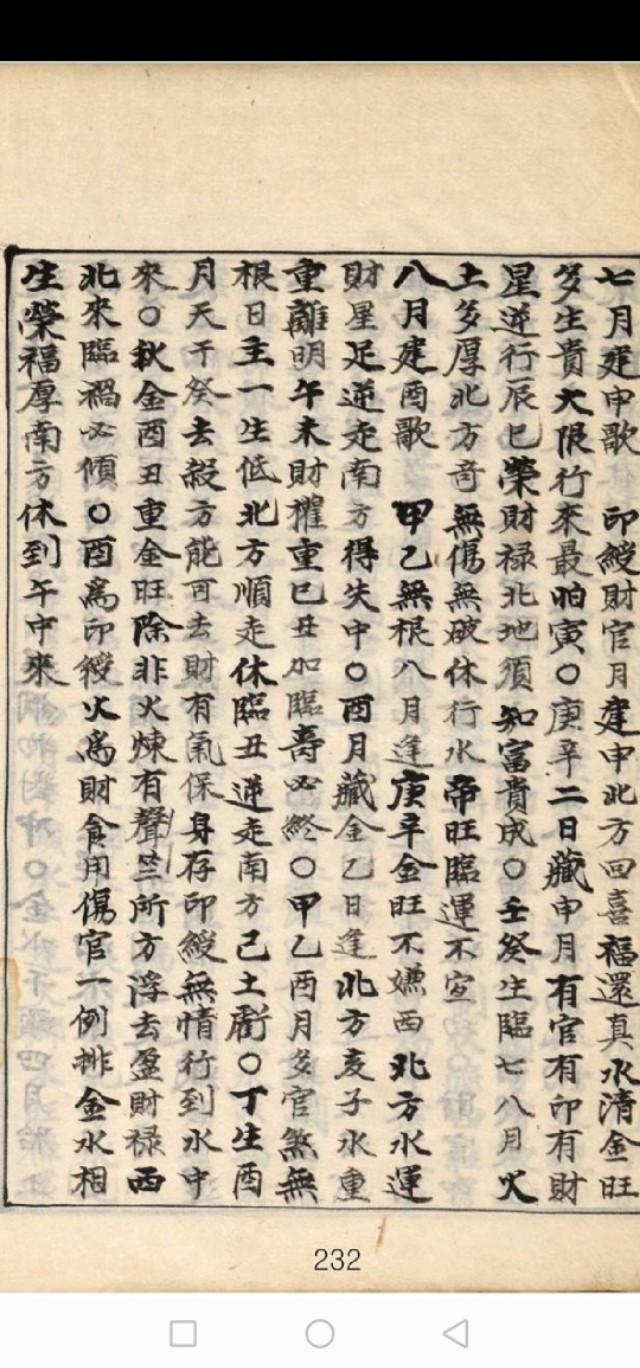 七月建申歌　印綬財官月建申北方回喜福還真水清金旺
多生貴大限行來最怕寅〇庚辛二日藏申月有官有印有財
星逆行辰巳榮財禄北地須知富貴成〇壬癸生臨七八月火
土多厚北方奇無傷無破休行水帝旺臨運不宣
八月建酉歌　甲乙無根八月逢庚辛金旺不嫌西北方水運
財星足逆走南方得失中〇酉月藏金乙日逢北方亥子水重
重離明午未財權重巳丑加臨壽必終〇甲乙酉月多官煞無
根日主一生低北方順走休臨丑逆走南方己土虧〇丁生酉
月天干癸去殺方能可去財有氣保身存印綬無情行到水中
來〇秋金酉丑重金旺除非火煉有聲竺所方浮去盈財禄西
北來臨禍必傾〇酉爲印綬火爲財食用傷官一例排金水相
生榮福厚南方休到午中來
232